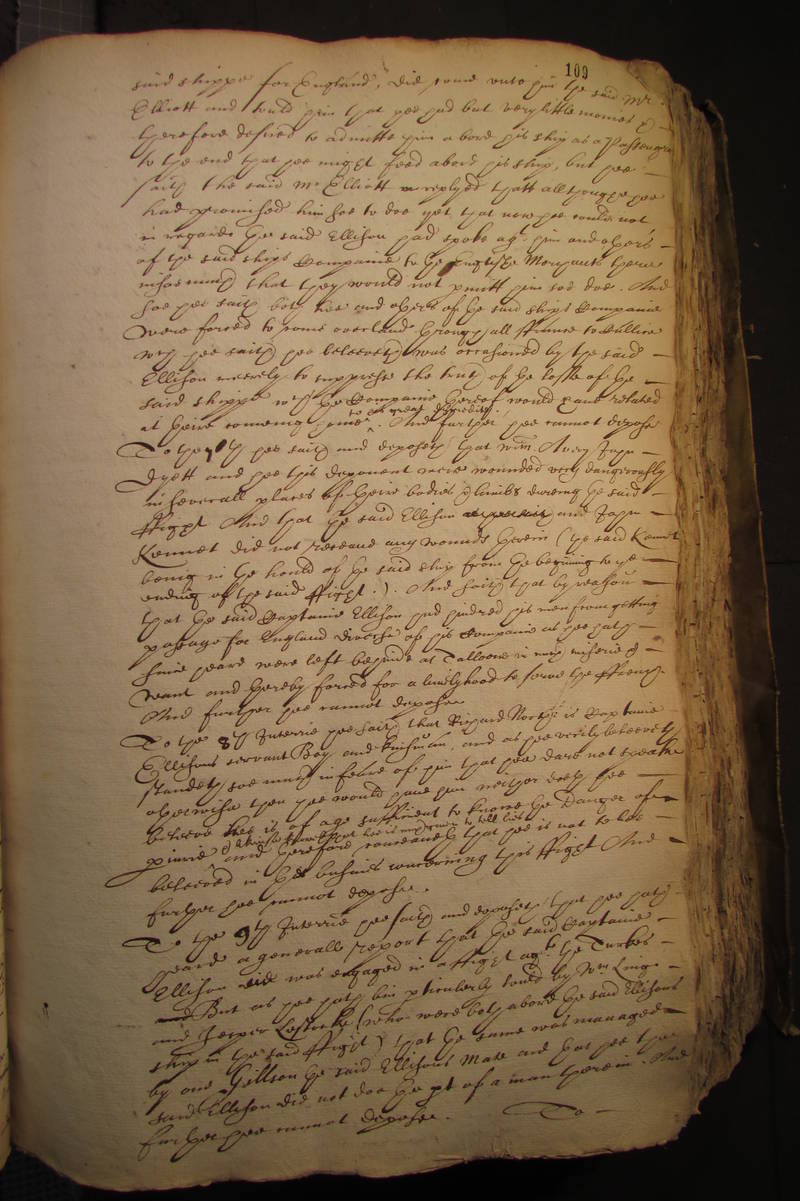 109
said shippe for England, did come unto him the said Mr
Elliott and tould him that hee had but very little monies &
therefore desired to admitte him abord his ship as a Passenger
to the end that hee might feed abord his ship, but hee
saith the said Mr Elliott replyed that although hee
had promised him soe to doe yet that now hee could not
in regard the said Ellison had spoke agt him and others
of the said ships Companie to the English Marchants there
insoemuch that they would not pmitt him soe doe. And
soe hee saith both hee and others of the said ships Companie
were forced to come overland through all ffrance to
wch hee saith hee beleeveth was occasioned by the said
Ellison meerely to suppresse the truth of the losse of the
said shippe wch the Companie thereof would have related
to his great discredit
at theire comeing home. And further hee cannot depose
To the 7th hee saith and deposeth that Wm Avery John
Dyett and hee this deponent were wounded very dangerously
in severall places of theire bodies & limbs dureing the said
ffight And that the said Ellison and John
Kennet did not receave any wounds therein (the said Kennet
being in the hould of the said ship from the begining to the
ending of the said ffight.). And saith that by reason
that the said Captaine Ellison had hindred his men from getting
passage for England diverse of his Companie as hee hath
since heard were left behinde at Tolloone in much miserie &
want and thereby forced for a livelyhood to serve the ffrench.
And further hee cannot depose.
To the 8th Interrie hee saith that Richard is Captaine
Ellisons servant Boy and kinsman, and as hee verily beleeveth
standeth soe much in feare of him that hee dare not speake
otherwise then hee would have him neither doth hee
beleeve that hee is of age sufficient to knowe the danger of
perjurie and therefore conceaveth that hee is not to bee
beleeved in the busines concerning this ffight And
further hee cannot depose.
To the 9th Interrie hee saith and deposeth that hee hath
heard a generall report that the said Captaine
Ellison was engaged in a ffight agt the Turkes
But as hee hath bin pticulerly tould by Wm
and Jesper (who were both abord the said Ellisons
ship in the said ffight) that the same was managed
by one Gillson the said Ellisons Mate and that hee the
said Ellison did not doe the pt of a man therein. And
further hee cannot depose.
To